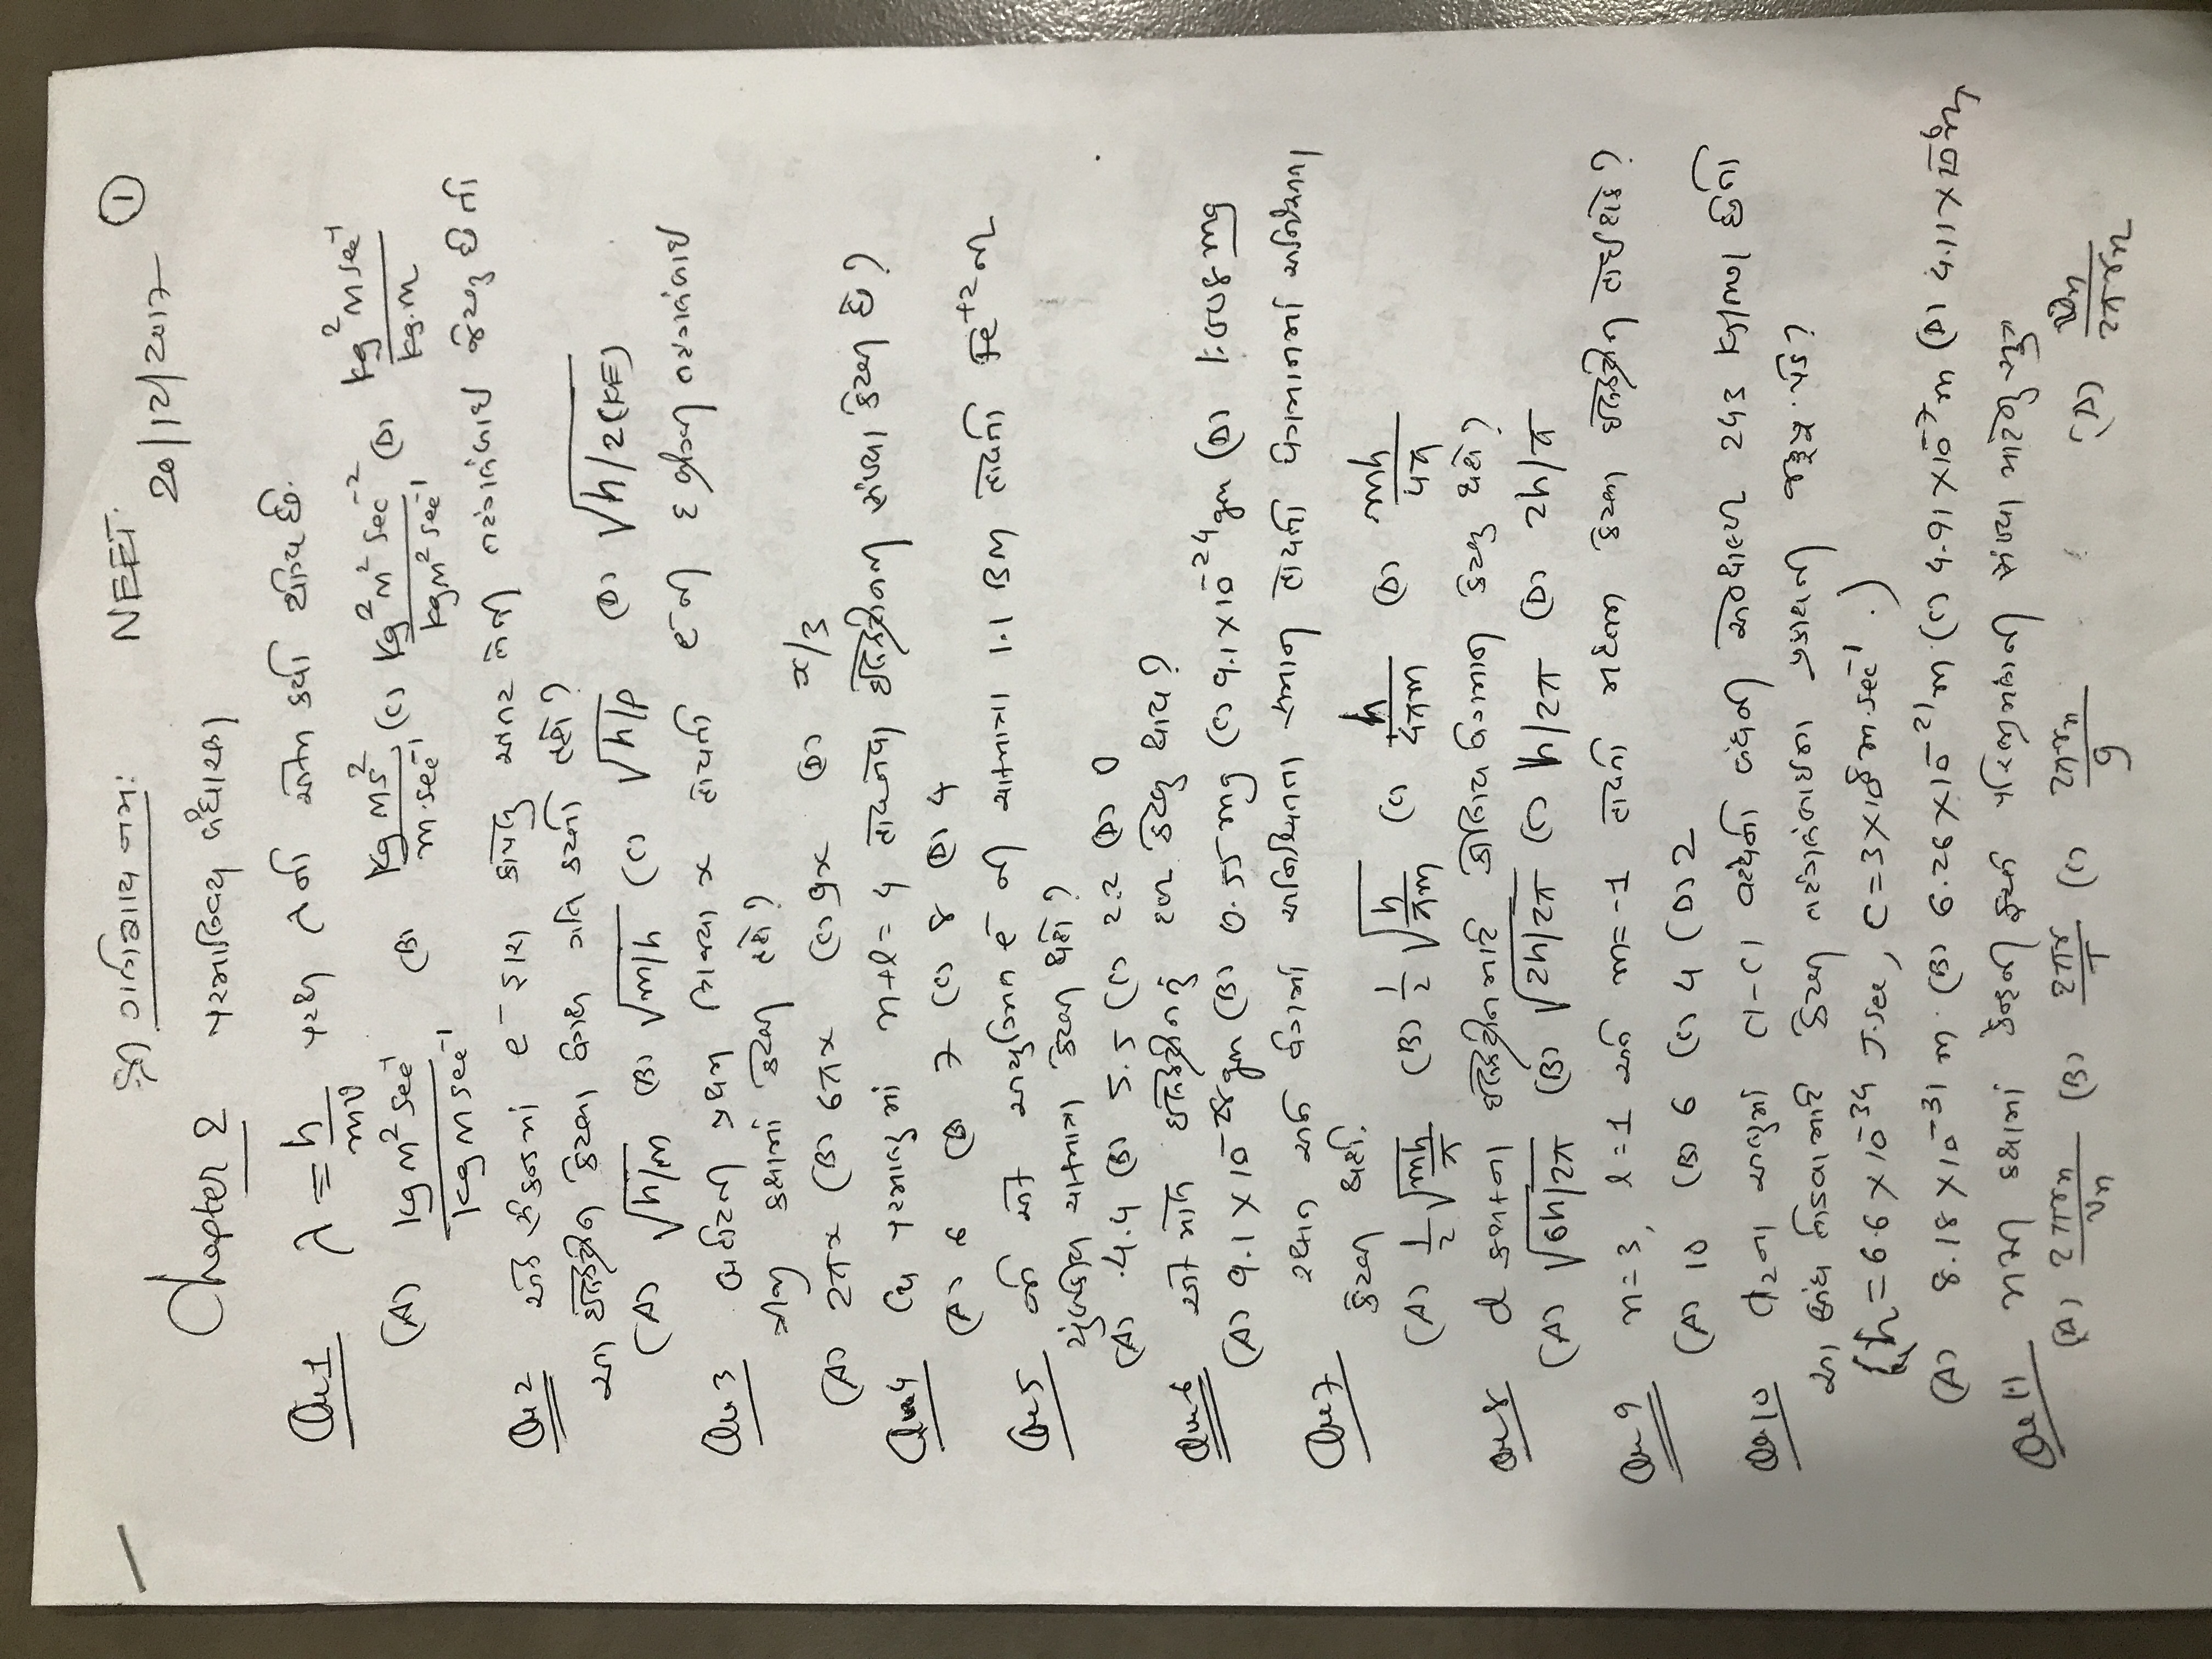 શ્રી ગણેશાય નમઃ NEET ①
20/12/2017
Chapter 2 પરમાણ્વિય બંધારણ
Que 1 λ = h/mv પરથી λ નો એકમ કયો યોગ્ય છે.
(A) kg m² sec⁻¹ / kg m sec⁻¹ (B) kg ms² / m.sec⁻¹ (C) kg² m² sec⁻² / kg m² sec⁻¹ (D) kg² m sec⁻¹ / kg.m
Que 2 એક સેકન્ડમાં e⁻ દ્વારા કાપેલુ અંતર તેની તરંગલંબાઇ જેટલુ છે તો
આ ઇલેક્ટ્રોન કેટલા વેગથી ગતિ કરતો હશે?
(A) √h/m (B) √m/h (C) √h/p (D) √h/2(KE)
Que 3 બોહરની પ્રથમ ત્રિજ્યા x હોયતો e⁻ ની દ બ્રોગ્લી તરંગલંબાઇ
ત્રીજી કક્ષામાં કેટલી હશે?
(A) 2πx (B) 6πx (C) 9x (D) x/3
Que 4 Cu પરમાણુમાં n+l = 4 હોય તેવા ઇલેક્ટ્રોનની સંખ્યા કેટલી છે?
(A) 6 (B) 7 (C) 8 (D) 4
Que 5 જો એક અયુગ્મિત e⁻ ની ચાકમાત્રા 1.1 BM હોયતો Fe⁺² ની
ચુંબકીય ચાકમાત્રા કેટલી થશે?
(A) 4.4 (B) 5.5 (C) 2.2 (D) 0
Que 6 એક મોલ ઇલેક્ટ્રોનનું દળ કેટલુ થાય?
(A) 9.1 × 10⁻²⁸ gm (B) 0.55 mg (C) 9.1 × 10⁻²⁴ gm (D) 1.008 mg
Que 7 સ્થાન અને વેગમાં અનિશ્ચિતતા સમાન હોયતો વેગમાનમાં અનિશ્ચિતતા
કેટલી થશે.
(A) 1/2 √mh/π (B) 1/2 √h/πm (C) h/4πm (D) mh/4π
Que 8 d કક્ષકના ઇલેક્ટ્રોન માટે કોણીય વેગમાન કેટલુ થશે?
(A) √6h/2π (B) √2h/2π (C) h/2π (D) 2h/π
Que 9 n=3, l=1 અને m=-1 હોયતો મહત્તમ કેટલા ઇલેક્ટ્રોન હોઇ શકે?
(A) 10 (B) 6 (C) 4 (D) 2
Que 10 Cl-Cl વચ્ચેની બંધની 243 kJ/mol છે તો
આ બંધ તોડવા માટે કેટલી તરંગલંબાઇના પ્રકાશની જરૂર પડે?
(h = 6.6 × 10⁻³⁴ J.sec, C = 3 × 10⁸ m.sec⁻¹.)
(A) 8.18 × 10⁻³¹ m. (B) 6.26 × 10⁻²¹ m. (C) 4.91 × 10⁻⁷ m (D) 4.11 × 10⁻⁶ m
Que 11 nમી કક્ષામાં કેન્દ્રની ફરતે પરિભ્રમણની સંખ્યા માટેનુ સુત્ર
(A) 2πrn / vn (B) 2πr / T (C) 2πrn / 9 (D) vn / 2πrn